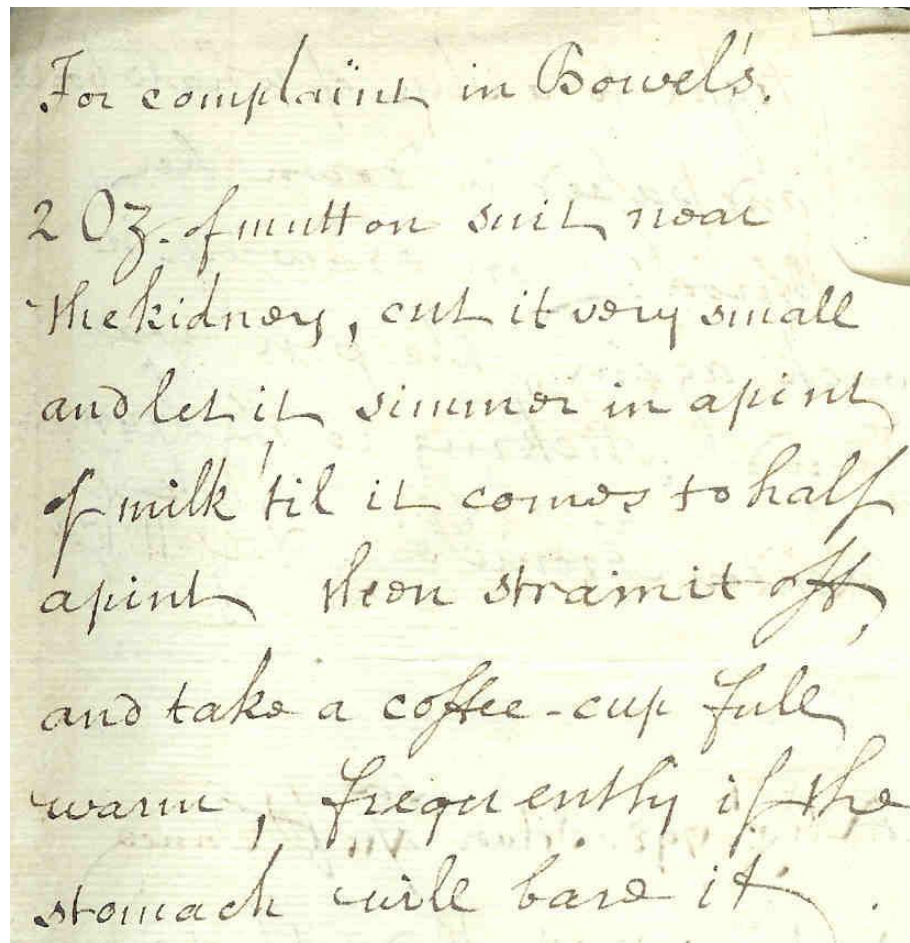 For complaint in Bowel's.
2 Oz. of mutton suit near
the kidney, cut it very small
and let it simmer in a pint
of milk 'til it comes to half
a pint then strain it off,
and take a coffee-cup full
warm, frequently if the
stomach will bare it.